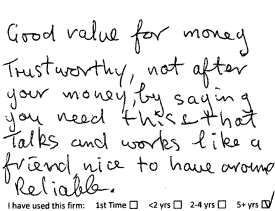 Good value for money
Trustworthy, not after
your money, by saying
you need this + that
Talks and works like a
friend nice to have around
Reliable.
I have used this firm: 1st Time ☐ <2 yrs ☐ 2-4 yrs ☐ 5+ yrs ☑